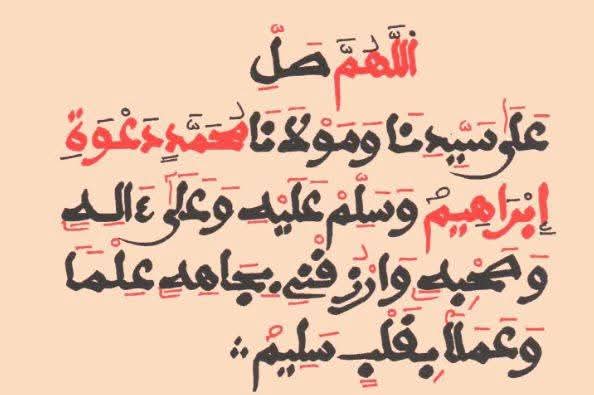 اَللَّهُمَّ صَلِّ
عَلَى سَيِّدِنَا وَمَوْلَانَا مُحَمَّدٍ دَعْوَةِ
إِبْرَاهِيمْ وَسَلِّمْ عَلَيْهِ وَعَلَى ءَالِهِ
وَصَحْبِهِ وَارْزُقْنِي بِجَاهِهِ عِلْمًا
وَعَمَلًا بِقَلْبٍ سَلِيمْ